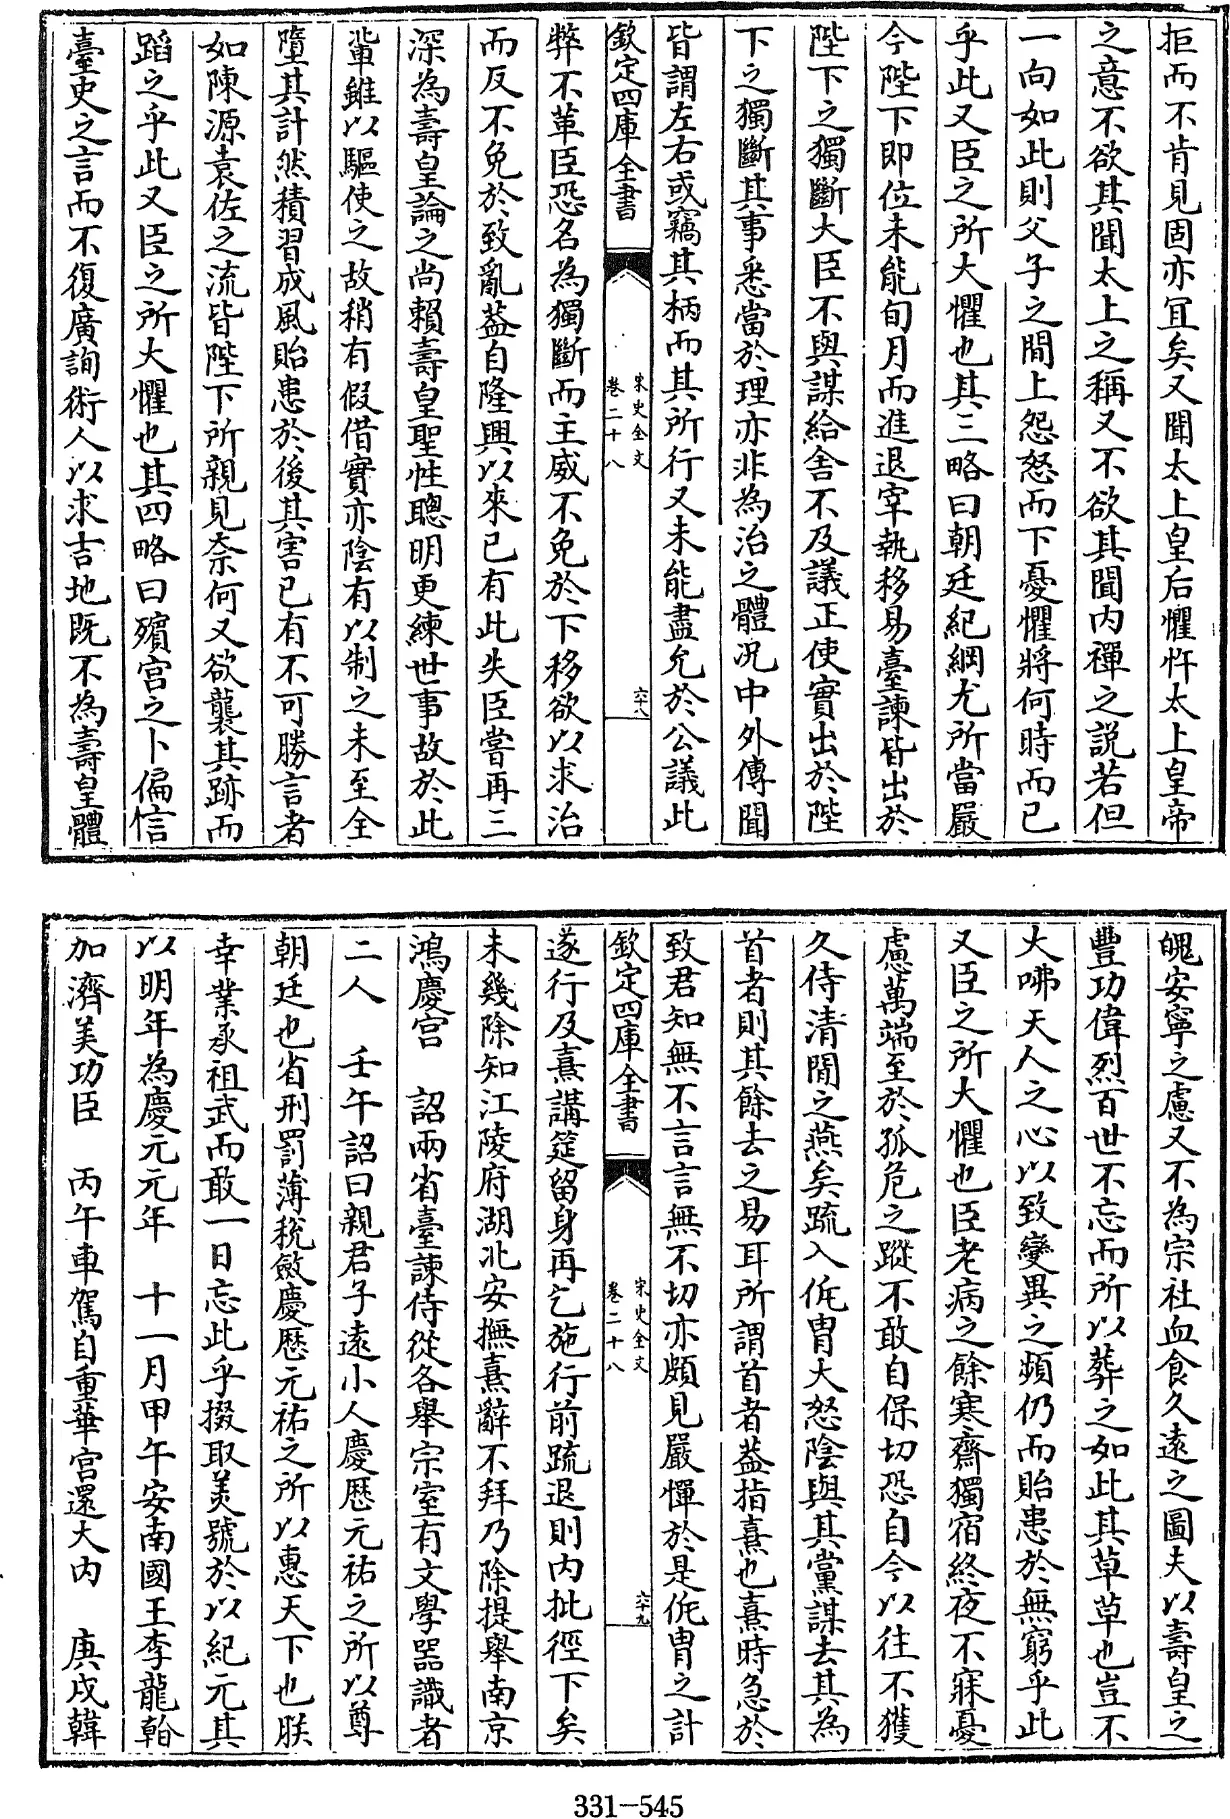 拒而不肯見固亦宜矣又聞太上皇后懼忤太上皇帝
之意不欲其聞太上之稱又不欲其聞内禪之説若但
一向如此則父子之間上怨怒而下憂懼將何時而已
乎此又臣之所大懼也其三略曰朝廷紀綱尤所當嚴
今陛下即位未能旬月而進退宰執移易臺諫皆出於
陛下之獨斷大臣不與謀給舍不及議正使實出於陛
下之獨斷其事悉當於理亦非為治之體况中外傳聞
皆謂左右或竊其柄而其所行又未能盡允於公議此
欽定四庫全書
宋史全文
卷二十八
六十八
弊不革臣恐名為獨斷而主威不免於下移欲以求治
而反不免於致亂葢自隆興以來已有此失臣嘗再三
深為壽皇論之尚賴壽皇聖性聰明更練世事故於此
輩雖以驅使之故稍有假借實亦陰有以制之未至全
墮其計然積習成風貽患於後其害已有不可勝言者
如陳源袁佐之流皆陛下所親見奈何又欲襲其跡而
蹈之乎此又臣之所大懼也其四略曰殯宫之卜偏信
臺史之言而不復廣詢術人以求吉地既不為壽皇體
魄安寧之慮又不為宗社血食久遠之圖夫以壽皇之
豐功偉烈百世不忘而所以葬之如此其草草也豈不
大咈天人之心以致變異之頻仍而貽患於無窮乎此
又臣之所大懼也臣老病之餘寒齋獨宿終夜不寐憂
慮萬端至於孤危之蹤不敢自保切恐自今以往不獲
久侍清閒之燕矣疏入侂胄大怒陰與其黨謀去其為
首者則其餘去之易耳所謂首者葢指熹也熹時急於
致君知無不言言無不切亦頗見嚴憚於是侂胄之計
欽定四庫全書
宋史全文
卷二十八
六十九
遂行及熹講筵留身再乞施行前疏退則内批徑下矣
未幾除知江陵府湖北安撫熹辭不拜乃除提舉南京
鴻慶宫　詔兩省臺諫侍從各舉宗室有文學器識者
二人　壬午詔曰親君子逺小人慶厯元祐之所以尊
朝廷也省刑罰薄税斂慶厯元祐之所以惠天下也朕
幸業承祖武而敢一日忘此乎掇取美號於以紀元其
以明年為慶元元年　十一月甲午安南國王李龍翰
加濟美功臣　丙午車駕自重華宫還大内　庚戌韓
331—545